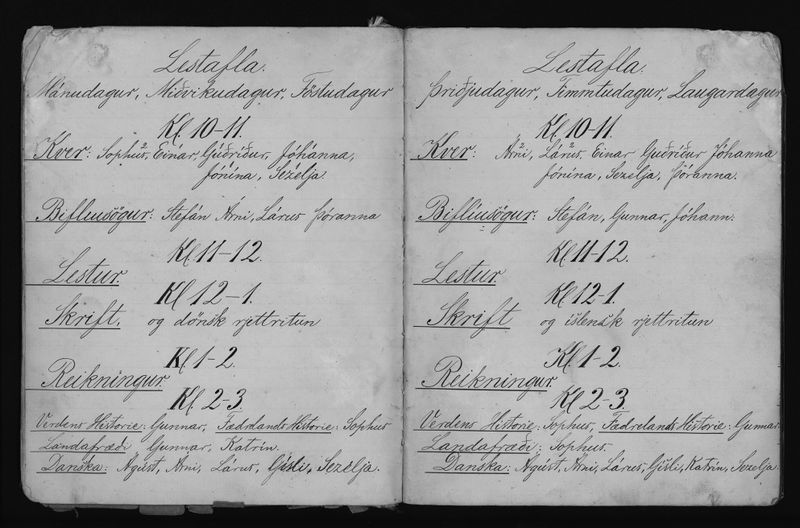 Lestafla.
Mánudagur, Miðvikudagur, Föstudagur
Kl. 10-11.
Kver: Sophus, Einar, Guðríður, Jóhanna,
Jónína, Sezelja.
Biflíusögur: Stefán Árni, Lárus Þóranna
Kl 11-12.
Lestur.
Kl 12-1.
Skrift. og dönsk rjettritun
Kl 1-2.
Reikningur
Kl. 2-3
Verdens Historie: Gunnar, Fædrelands Historie: Sophus
Landafræði Gunnar, Katrín.
Danska: Agúst, Arni, Lárus, Gísli, Sezelja.
Lestafla.
Þriðjudagur, Fimmtudagur, Laugardagur
Kl. 10-11.
Kver: Árni, Lárus, Einar Guðríður Jóhanna
Jónína, Sezelja, Þóranna.
Biflíusögur: Stefán, Gunnar, Jóhann.
Kl 11-12.
Lestur.
Kl 12-1.
Skrift og íslensk rjettritun
Kl. 1-2
Reikningur.
Kl 2-3
Verdens Historie: Sophus, Fædrelands Historie: Gunnar
Landafræði: Sophus.
Danska: Agúst, Arni, Lárus, Gísli, Katrín, Sezelja